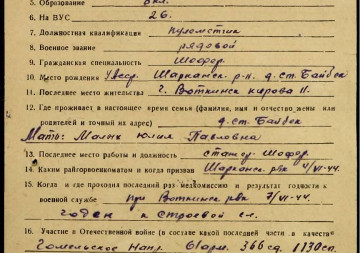 5. Образование 5 кл.
6. На ВУС 26.
7. Должностная квалификация пулеметчик
8. Военное звание рядовой
9. Гражданская специальность Шофер.
10. Место рождения Удмур. Шарканск. р-н. д. ст. Байбек
11. Последнее место жительства г. Воткинск кирова 11.
12. Где проживает в настоящее время семья (фамилия, имя и отчество жены или
родителей и точный их адрес) д. ст. Байбек
Мать: Малых Юлия Павловна
13. Последнее место работы и должность Шофер.
14. Каким райгорвоенкоматом и когда призван Шарканск. рвк 4/VII-44.
15. Когда и где проходил последний раз медкомиссию и результат годности к
военной службе при Воткинск рвк 7/VII-44.
годен к строевой сл.
16. Участие в Отечественной войне (в составе какой последней части в качестве
Гомельское Напр. 61 арм. 366 сд. 1130 сп.